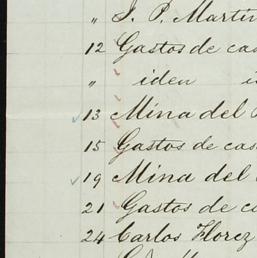 " J. P. Martin
12 Gastos de cas
" iden i
✓ 13 Mina del
15 Gastos de cas
✓ 19 Mina del
21 Gastos de c
24 Carlos Florez